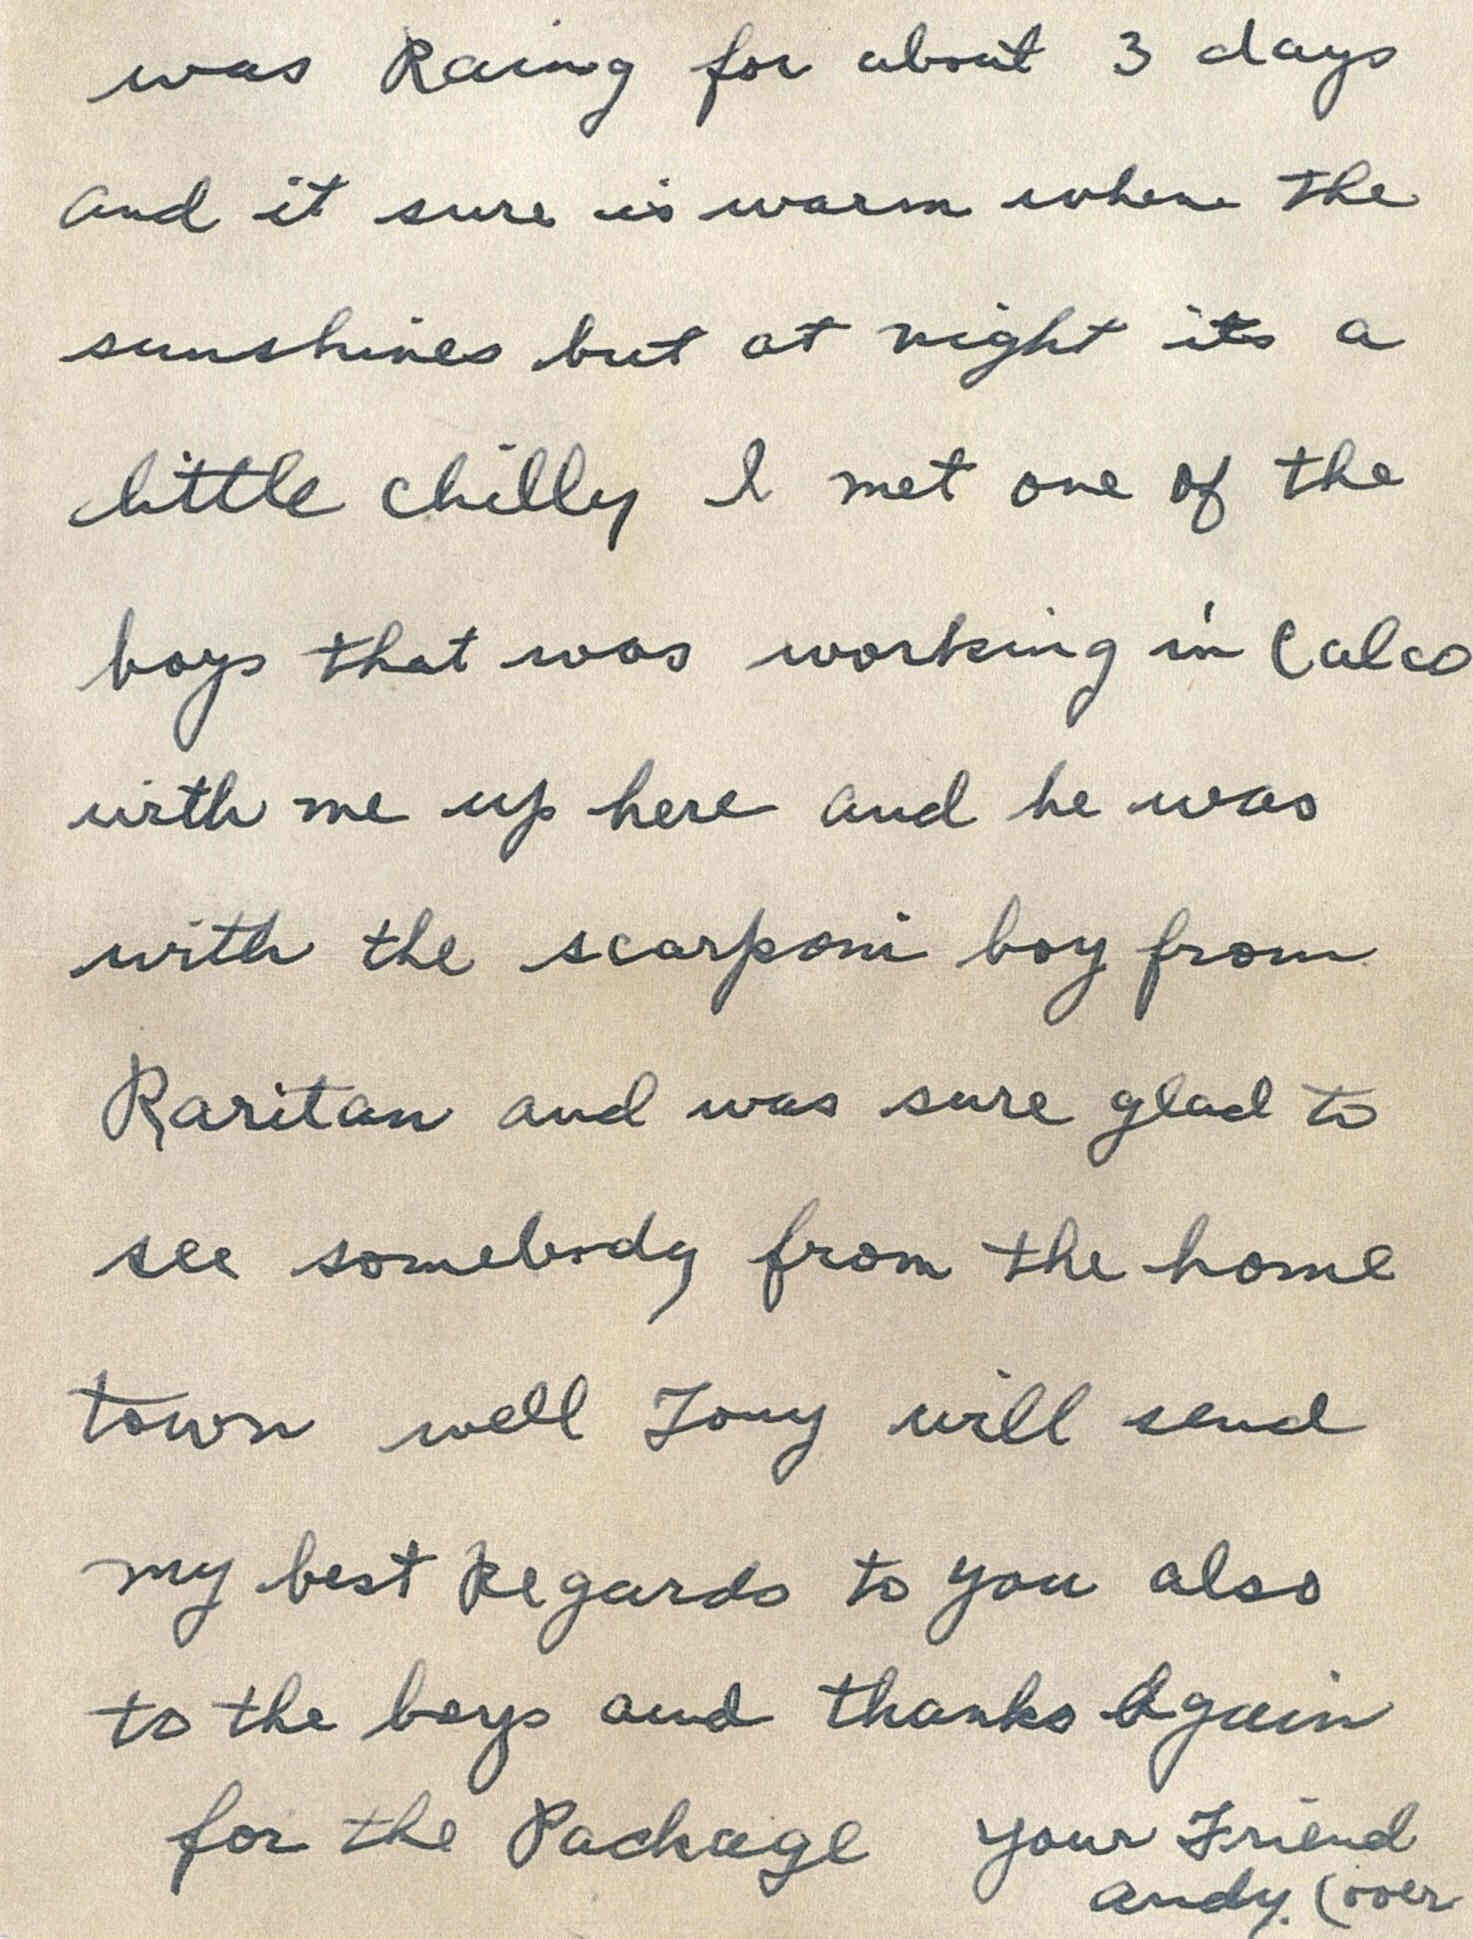 was Raing for about 3 days
and it sure is warm when the
sunshines but at night its a
little chilly I met one of the
boys that was working in Calco
with me up here and he was
with the scarponi boy from
Raritan and was sure glad to
see somebody from the home
town well Tony will send
my best Regards to you also
to the boys and thanks Again
for the Package your Friend
andy. (over